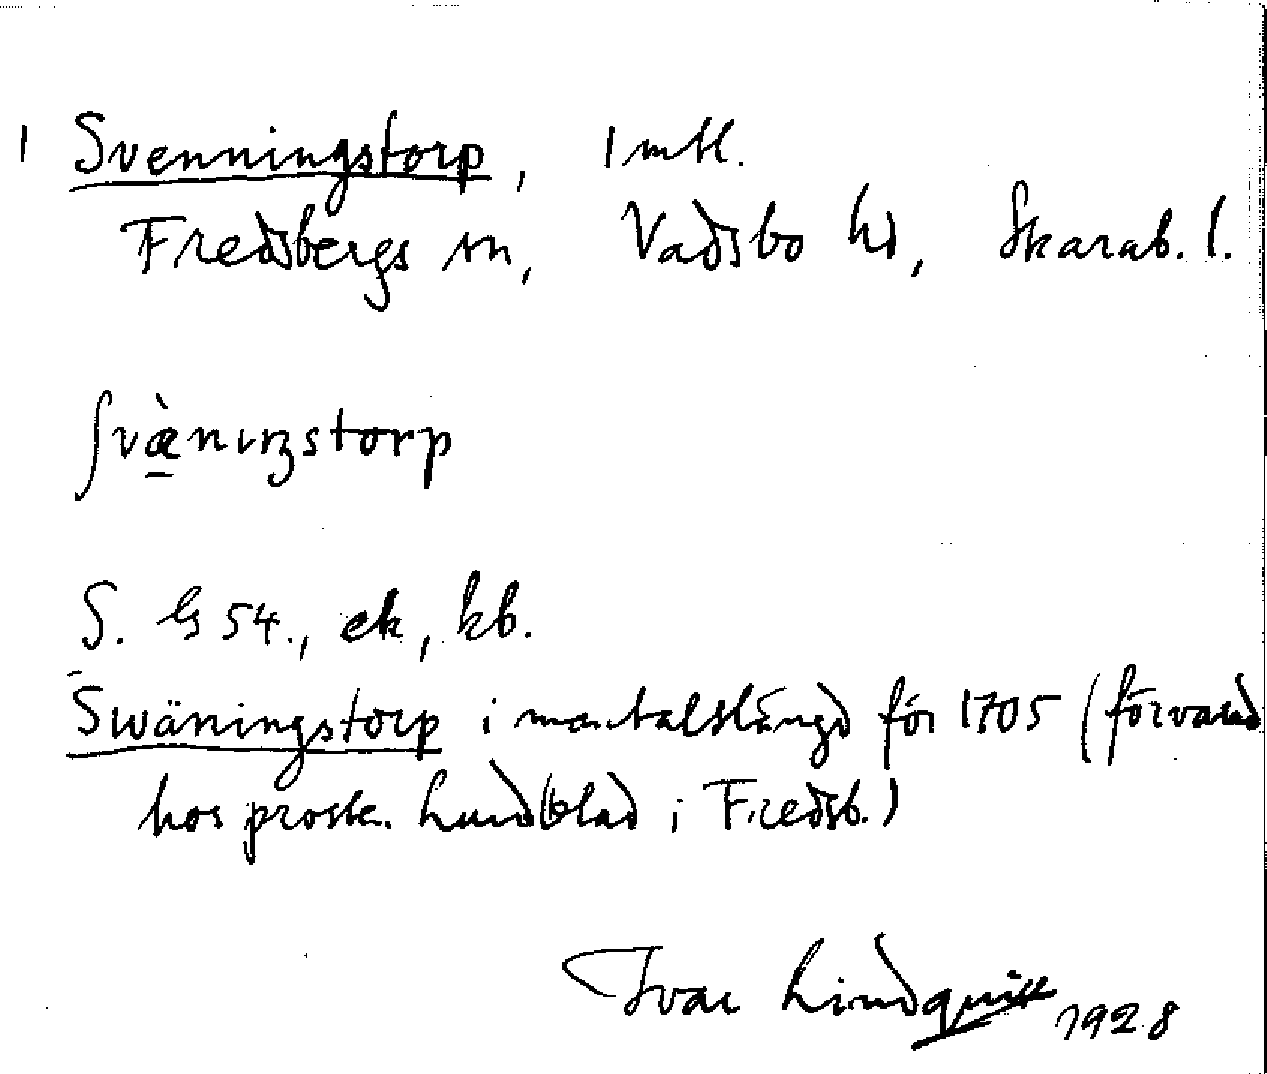 1 Svenningstorp, 1 mtl.
Fredsbergs sn, Vadsbo hd, Skarab. l.
ʃvæ̀nıŋstorp
S. GS 54., ek, kb.
Swäningstorp i mantalslängd för 1705 (förvarad
hos prosten Lundblad i Fredsb.)
Ivar Lindquist 1928